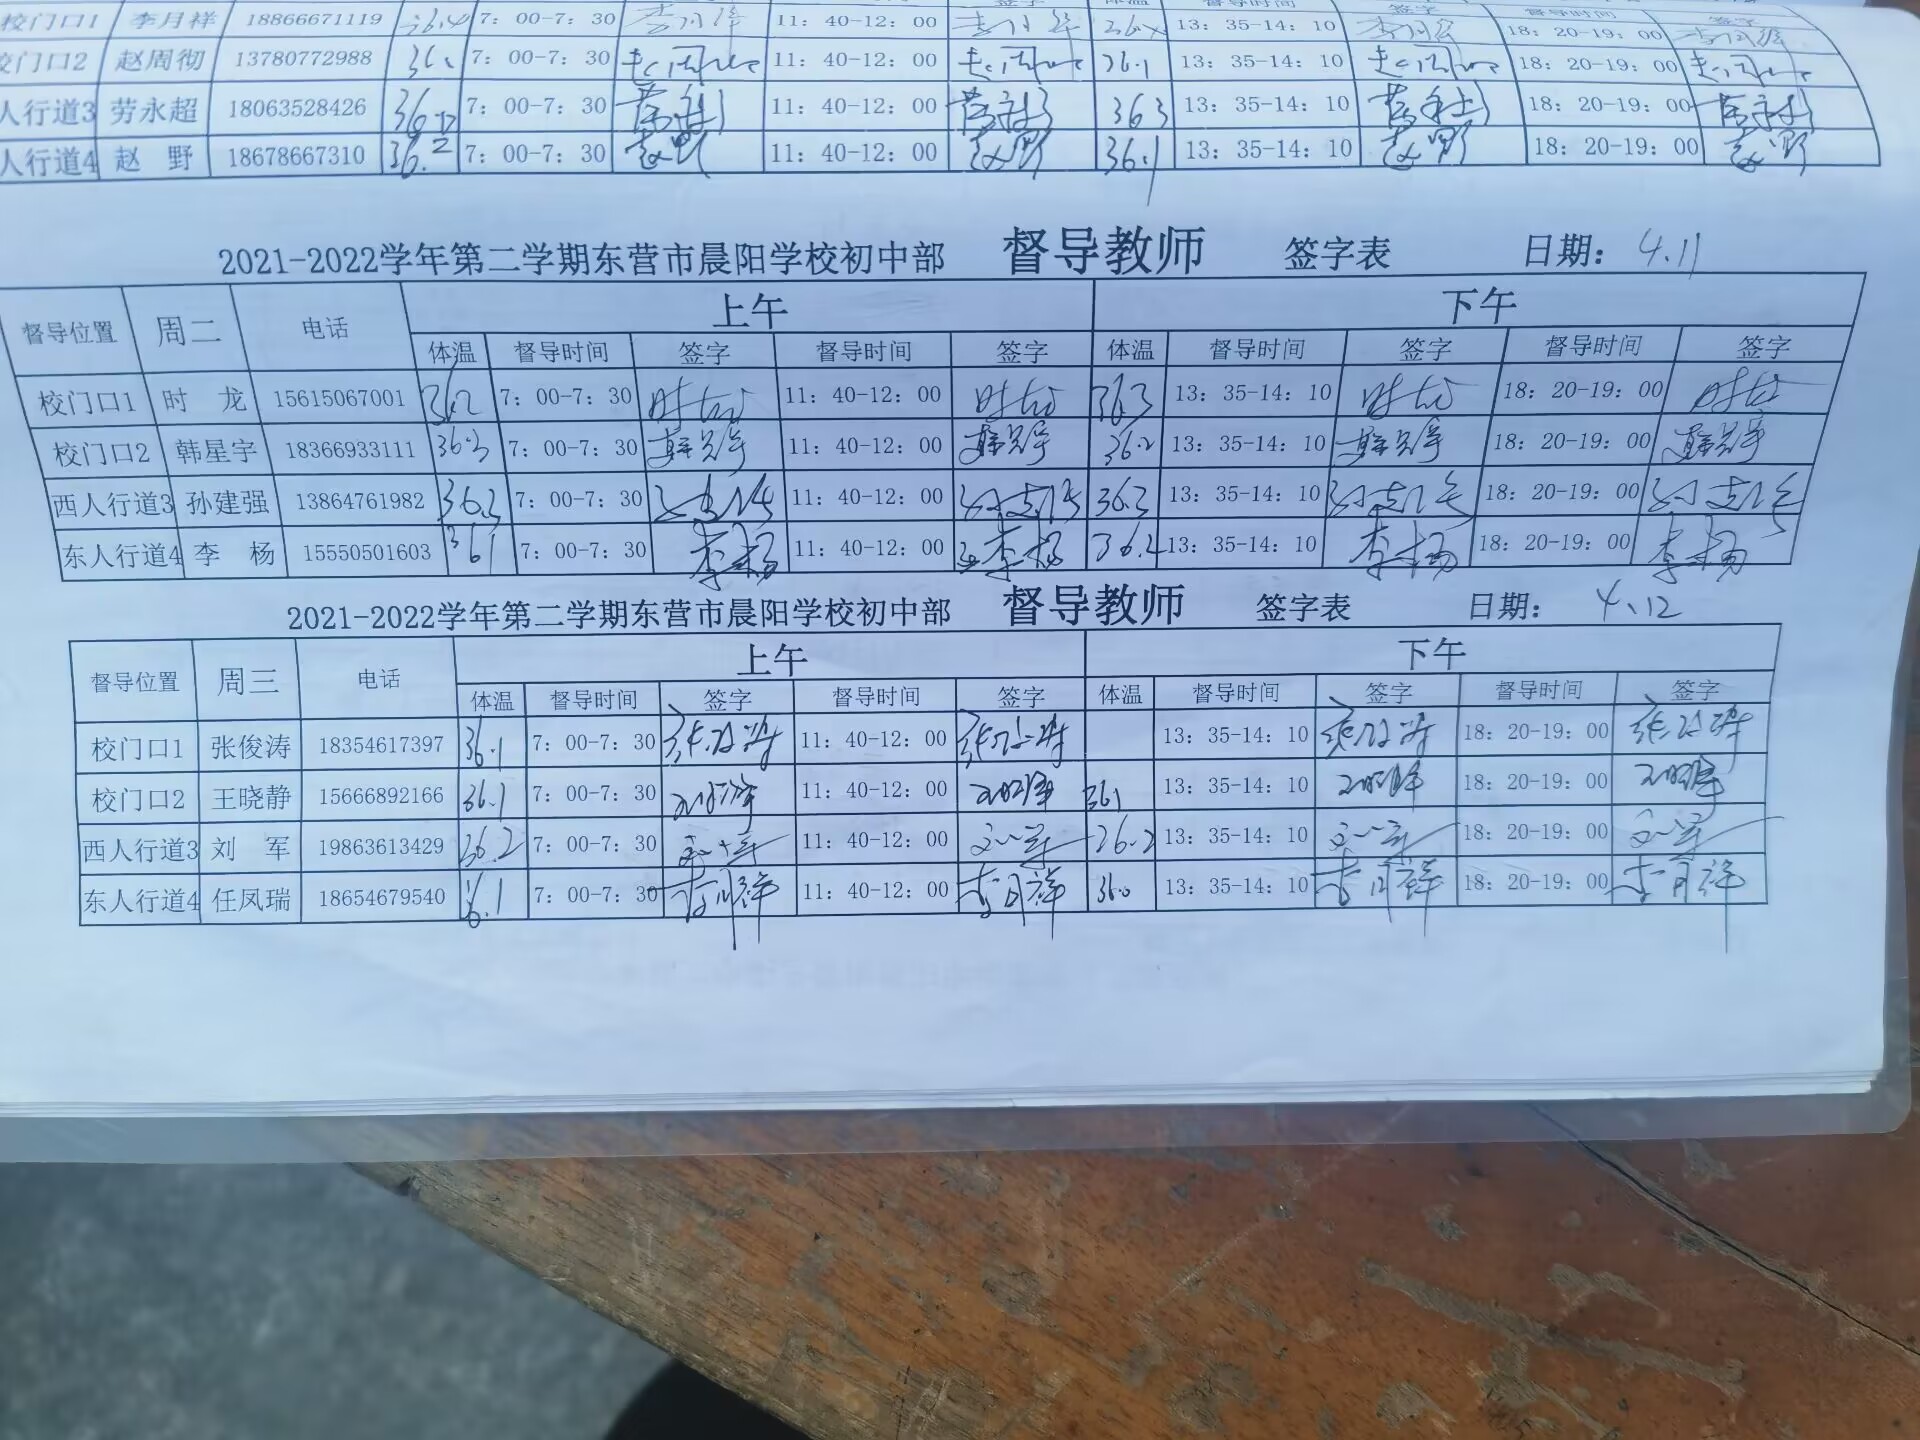 校门口1 李月祥 18866671119 36.4 7：00-7：30 李月祥 11：40-12：00 李月祥 13：35-14：10 李月祥 18：20-19：00 李月祥
校门口2 赵周彻 13780772988 7：00-7：30 11：40-12：00 36.1 13：35-14：10 18：20-19：00
人行道3 劳永超 18063528426 7：00-7：30 11：40-12：00 363 13：35-14：10 18：20-19：00
人行道4 赵 野 18678667310 36.2 7：00-7：30 赵野 11：40-12：00 赵野 36.1 13：35-14：10 赵野 18：20-19：00 赵野
2021-2022学年第二学期东营市晨阳学校初中部 督导教师 签字表 日期：4.11
督导位置 周二 电话 上午 下午
体温 督导时间 签字 督导时间 签字 体温 督导时间 签字 督导时间 签字
校门口1 时 龙 15615067001 36.2 7：00-7：30 时龙 11：40-12：00 时龙 36.3 13：35-14：10 时龙 18：20-19：00 时龙
校门口2 韩星宇 18366933111 36.3 7：00-7：30 韩星宇 11：40-12：00 韩星宇 36.2 13：35-14：10 韩星宇 18：20-19：00 韩星宇
西人行道3 孙建强 13864761982 36.3 7：00-7：30 孙建强 11：40-12：00 孙建强 36.3 13：35-14：10 孙建强 18：20-19：00 孙建强
东人行道4 李 杨 15550501603 361 7：00-7：30 李杨 11：40-12：00 李杨 36.2 13：35-14：10 李杨 18：20-19：00 李杨
2021-2022学年第二学期东营市晨阳学校初中部 督导教师 签字表 日期：4.12
督导位置 周三 电话 上午 下午
体温 督导时间 签字 督导时间 签字 体温 督导时间 签字 督导时间 签字
校门口1 张俊涛 18354617397 36.1 7：00-7：30 张俊涛 11：40-12：00 张俊涛 13：35-14：10 张俊涛 18：20-19：00 张俊涛
校门口2 王晓静 15666892166 36.1 7：00-7：30 王晓静 11：40-12：00 王晓静 36.1 13：35-14：10 王晓静 18：20-19：00 王晓静
西人行道3 刘 军 19863613429 36.2 7：00-7：30 刘军 11：40-12：00 刘军 36.2 13：35-14：10 刘军 18：20-19：00 刘军
东人行道4 任凤瑞 18654679540 36.1 7：00-7：30 李月祥 11：40-12：00 李月祥 36.0 13：35-14：10 李月祥 18：20-19：00 李月祥